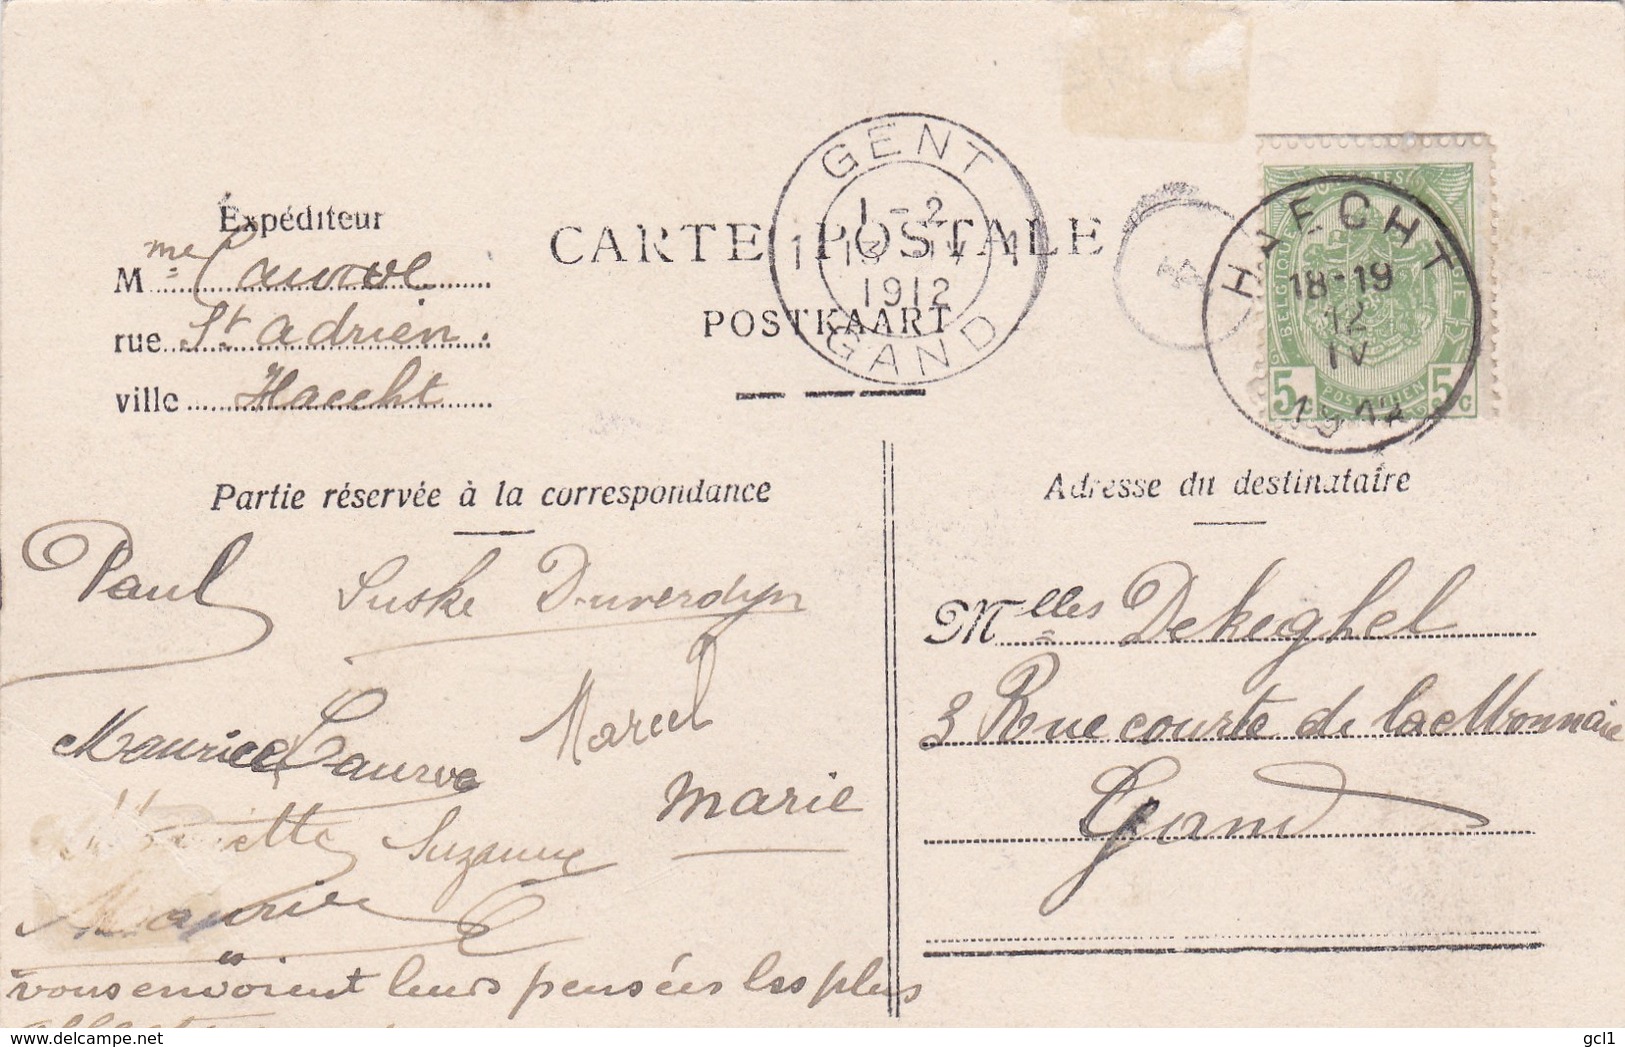 GENT
1-2
1 13 IV 1
1912
GAND
HAECHT
18-19
12
IV
1912
BELGIQUE
5 c POSTERIJEN 5 c
Expéditeur
CARTE POSTALE
POSTKAART
Mme Caurve
rue St adrien
ville Haecht
Partie réservée à la correspondance
Adresse du destinataire
Paul Suske Duverdyn
Marcel
Maurice Caurve
Marie
Suzanne
Maurice
vous envoient leurs pensées les plus
Mlles Dekeghel
3 Rue courte de la Monnaie
Gand
delcampe.net
gcl1